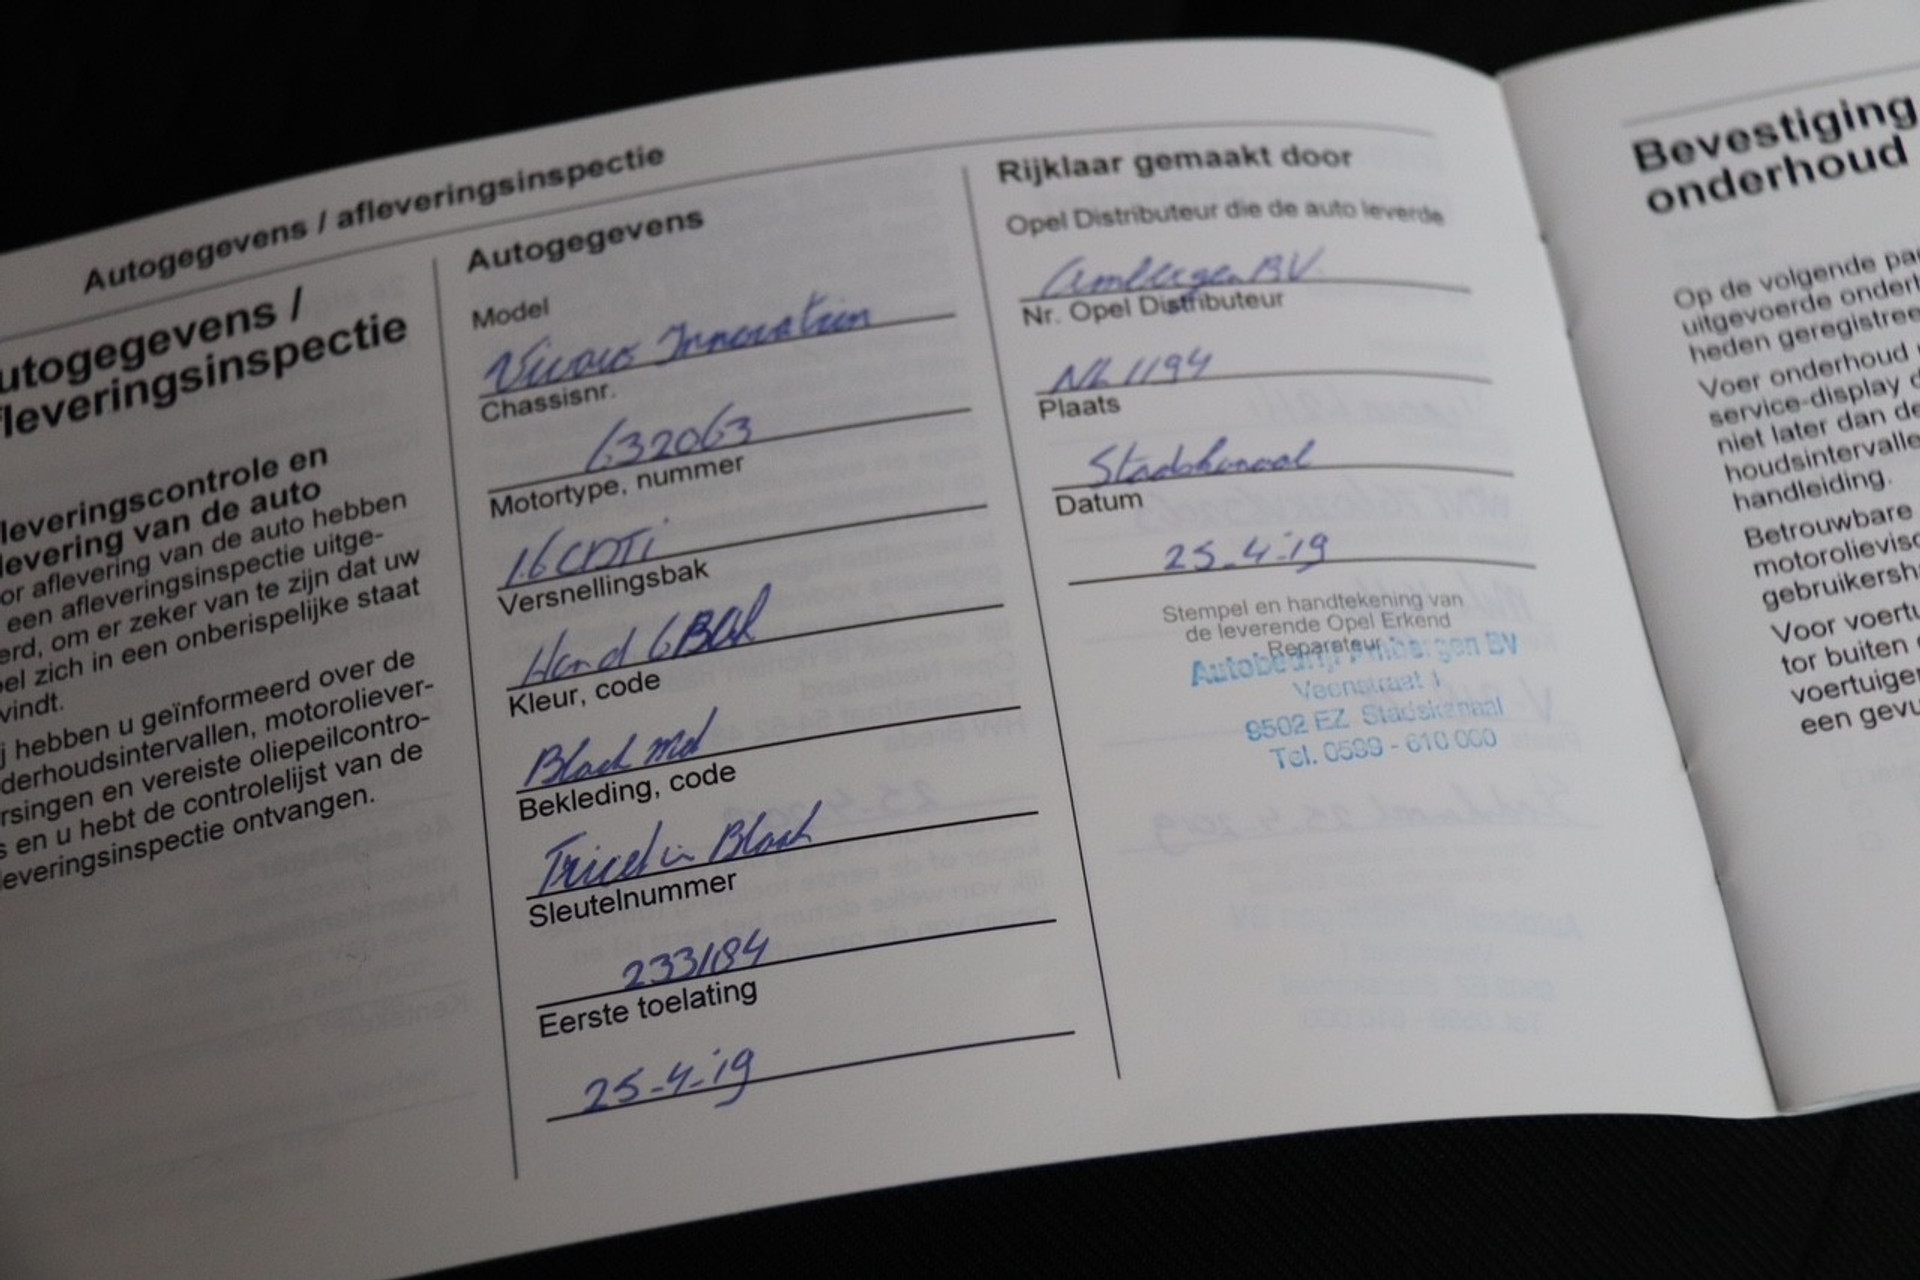 Autogegevens / afleveringsinspectie
utogegevens /
fleveringsinspectie
leveringscontrole en
levering van de auto
or aflevering van de auto hebben
een afleveringsinspectie uitge-
erd, om er zeker van te zijn dat uw
el zich in een onberispelijke staat
vindt.
j hebben u geïnformeerd over de
derhoudsintervallen, motoroliever-
rsingen en vereiste oliepeilcontro-
s en u hebt de controlelijst van de
leveringsinspectie ontvangen.
Autogegevens
Model
Vivaro Innovation
Chassisnr.
632063
Motortype, nummer
1.6 CDTi
Versnellingsbak
Hand 6 Bak
Kleur, code
Black Met
Bekleding, code
Black
Sleutelnummer
233184
Eerste toelating
25-4-19
Rijklaar gemaakt door
Opel Distributeur die de auto leverde
Ambergen BV.
Nr. Opel Distributeur
NL 1194
Plaats
Stadskanaal
Datum
25-4-19
Stempel en handtekening van
de leverende Opel Erkend
Reparateur
Autobedrijf Ambergen BV
Veenstraat 1
9502 EZ Stadskanaal
Tel. 0599 - 610 000
Bevestiging
onderhoud
Op de volgende pa
uitgevoerde ondert
heden geregistree
Voer onderhoud
service-display d
niet later dan de
houdsintervalle
handleiding.
Betrouwbare
motorolievis
gebruikersh
Voor voertu
tor buiten
voertuigen
een gevu